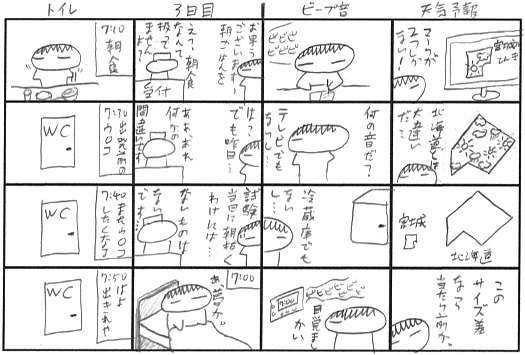 天気予報
マークが
1つしか
ない!
宮城の
てんき
北海道とは
大違い
だ…
宮城
北海道
この
サイズ差
なら
当たり前か。
ビープ音
何の音だ?
テレビでも
ないし…
冷蔵庫でも
ない
し…
7:00
目覚まし
かい
3日目
お早う
ございますー
朝ごはんを
え?、朝食
なんて
扱って
ませんが
受付
は?、
でも昨日…
あああれ
何かの
間違いです
試験
当日に朝抜く
わけには…
ないものは
ない
です…
7:00
あ、夢か。
トイレ
7:10
朝食
WC
7:30 出発前の
ウ○コ
WC
7:40 またウ○コ
したくなる
WC
7:50 はよ
出きれや